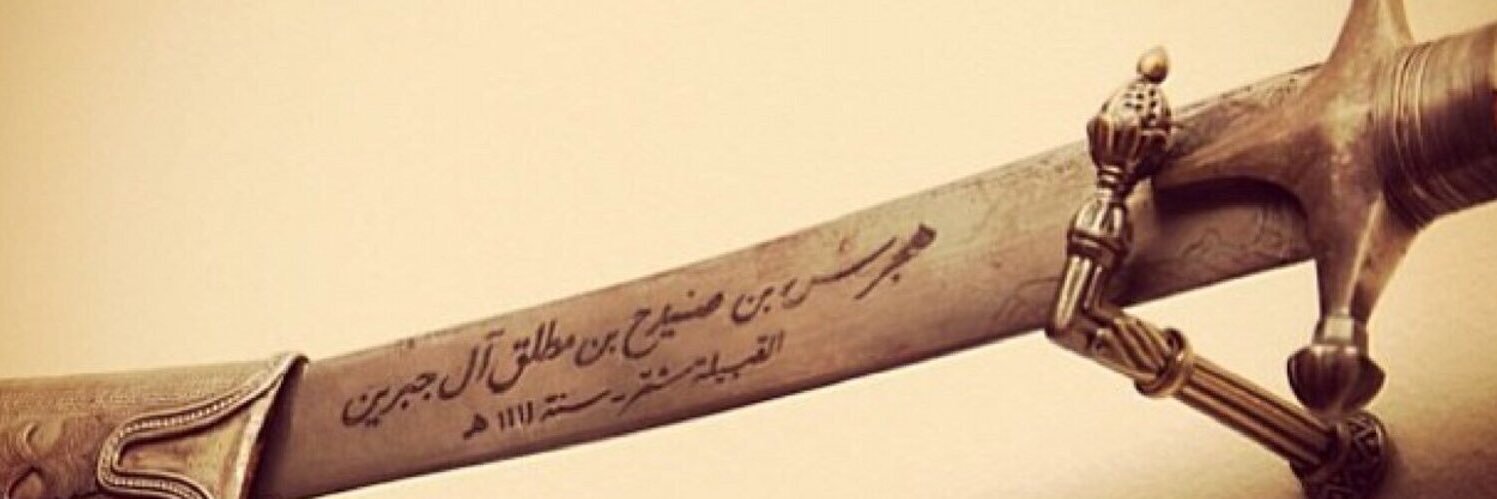 هجرس بن صنيدح بن مطلق آل جبرين
القبيلة شمر - سنة ١١١١ هـ